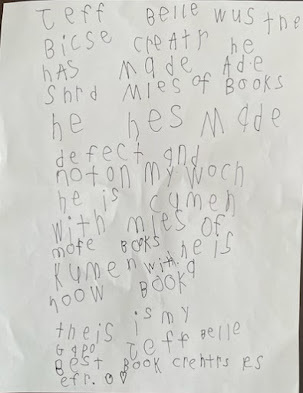 Jeff Belle wus the
Bicse creatr he
hAS mAde Ade
Shrd Mles of Books
he hes made
defect and
not on my woch
he is cumen
with mles of
more Books he is
Kumen with a
noow Book
theis is my
Jeff Belle
Best Book crehtrs es
efr.